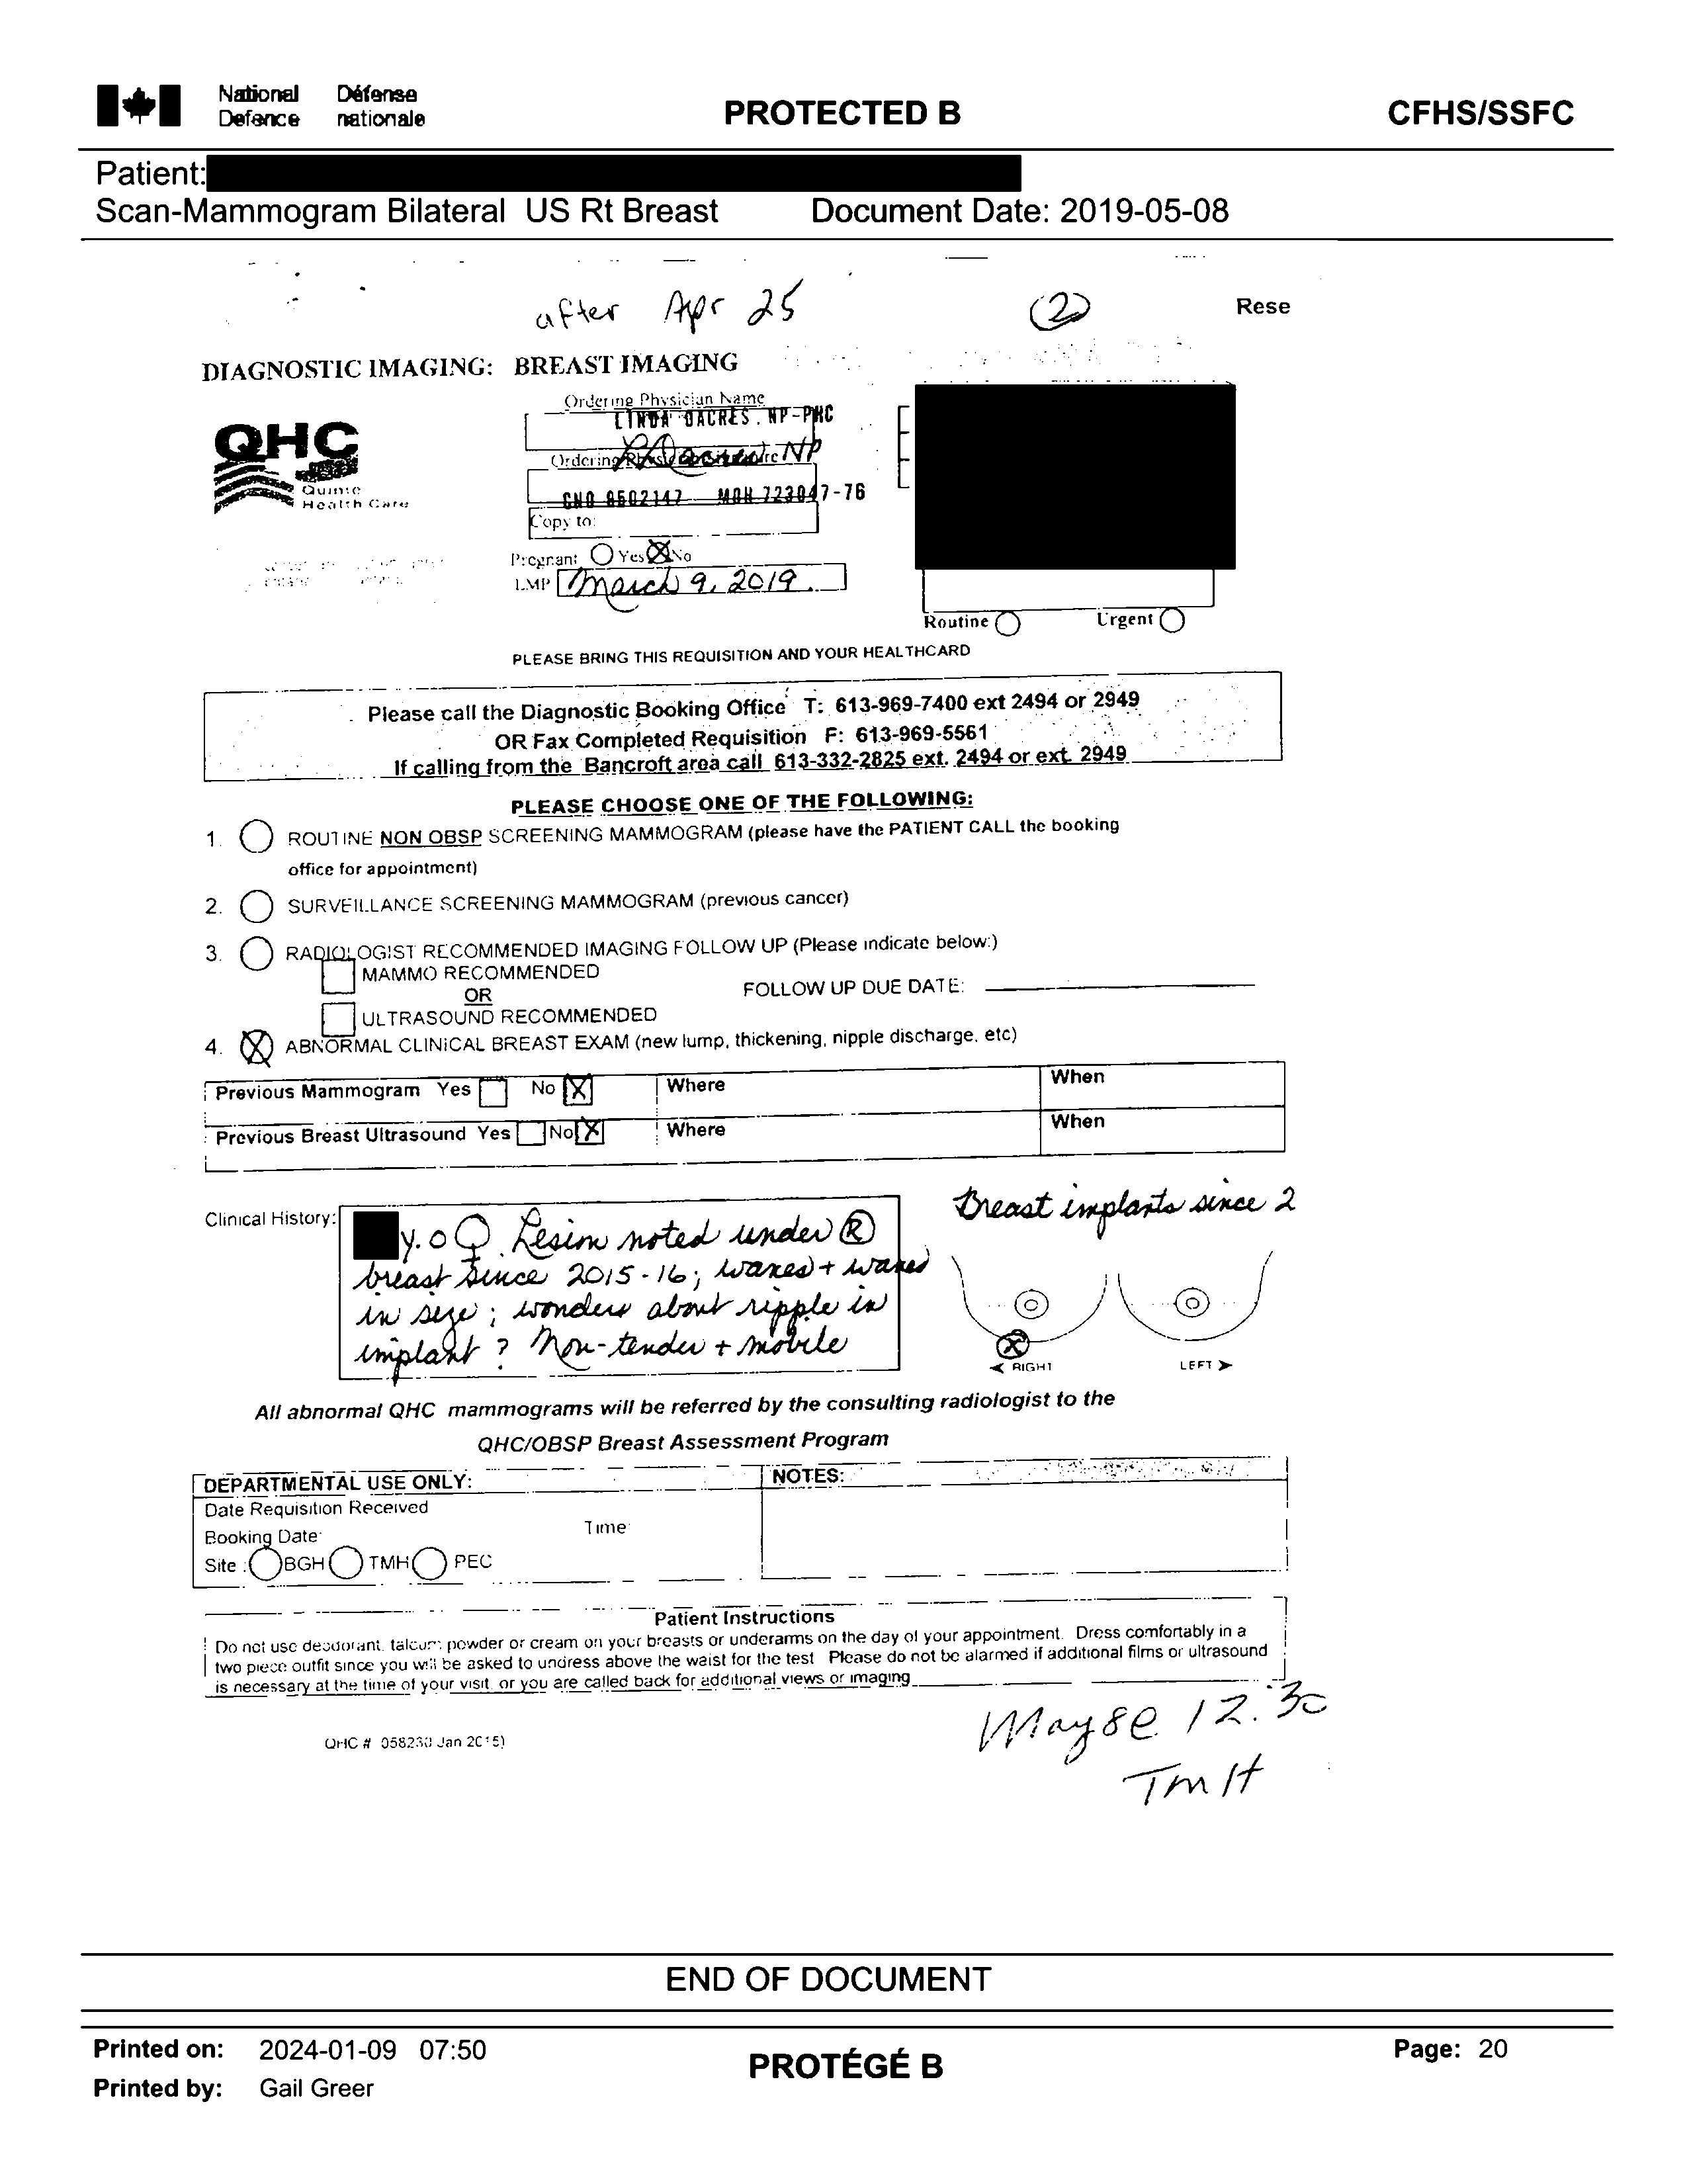 National Défense
Defence nationale
PROTECTED B
CFHS/SSFC
Patient:
Scan-Mammogram Bilateral US Rt Breast Document Date: 2019-05-08
after Apr 25 (2) Rese
DIAGNOSTIC IMAGING: BREAST IMAGING
QHC
Quinte
Health Care
Ordering Physician Name
LINDA DACRES. NP-PHC
LDacres NP
CNO 9502147 MOH 723047-76
Copy to:
Pregnant Yes No
LMP March 9, 2019.
Routine Urgent
PLEASE BRING THIS REQUISITION AND YOUR HEALTHCARD
Please call the Diagnostic Booking Office T: 613-969-7400 ext 2494 or 2949
OR Fax Completed Requisition F: 613-969-5561
If calling from the Bancroft area call 613-332-2825 ext. 2494 or ext. 2949
PLEASE CHOOSE ONE OF THE FOLLOWING:
1. ROUTINE NON OBSP SCREENING MAMMOGRAM (please have the PATIENT CALL the booking
office for appointment)
2. SURVEILLANCE SCREENING MAMMOGRAM (previous cancer)
3. RADIOLOGIST RECOMMENDED IMAGING FOLLOW UP (Please indicate below:)
MAMMO RECOMMENDED
OR
FOLLOW UP DUE DATE:
ULTRASOUND RECOMMENDED
4. X ABNORMAL CLINICAL BREAST EXAM (new lump, thickening, nipple discharge, etc)
Previous Mammogram Yes No X Where When
Previous Breast Ultrasound Yes No X Where When
Breast implants since 2
Clinical History:
y.o ♀. Lesion noted under Ⓡ
breast since 2015-16; waxes + wanes
in size; wonders about ripple in
implant? Non-tender + mobile
X
RIGHT LEFT
All abnormal QHC mammograms will be referred by the consulting radiologist to the
QHC/OBSP Breast Assessment Program
DEPARTMENTAL USE ONLY: NOTES:
Date Requisition Received
Booking Date: Time
Site: BGH TMH PEC
Patient Instructions
Do not use deodorant, talcum powder or cream on your breasts or underarms on the day of your appointment. Dress comfortably in a
two piece outfit since you will be asked to undress above the waist for the test Please do not be alarmed if additional films or ultrasound
is necessary at the time of your visit, or you are called back for additional views or imaging
May 8 @ 12:30
TMH
QHC # 058230 Jan 2015)
END OF DOCUMENT
Printed on: 2024-01-09 07:50
Printed by: Gail Greer
PROTÉGÉ B
Page: 20